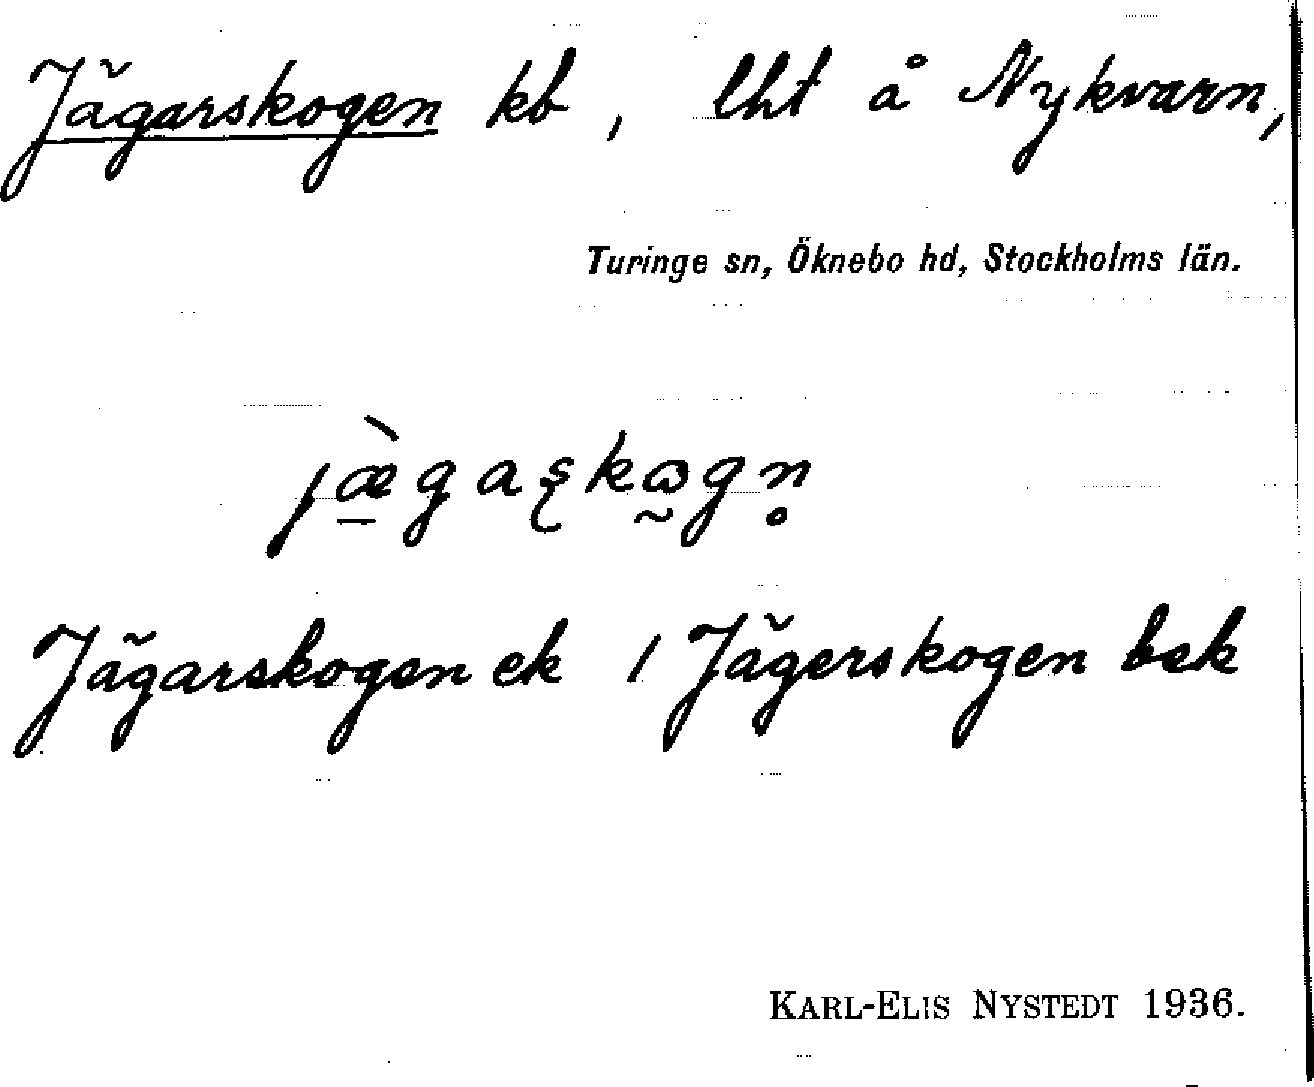 Jägarskogen kb, lht å Nykvarn,
Turinge sn, Öknebo hd, Stockholms län.
jæ̠̀gaʂkɷ̰gn̥
Jägarskogen ek / Jägerskogen bek
KARL-ELIS NYSTEDT 1936.